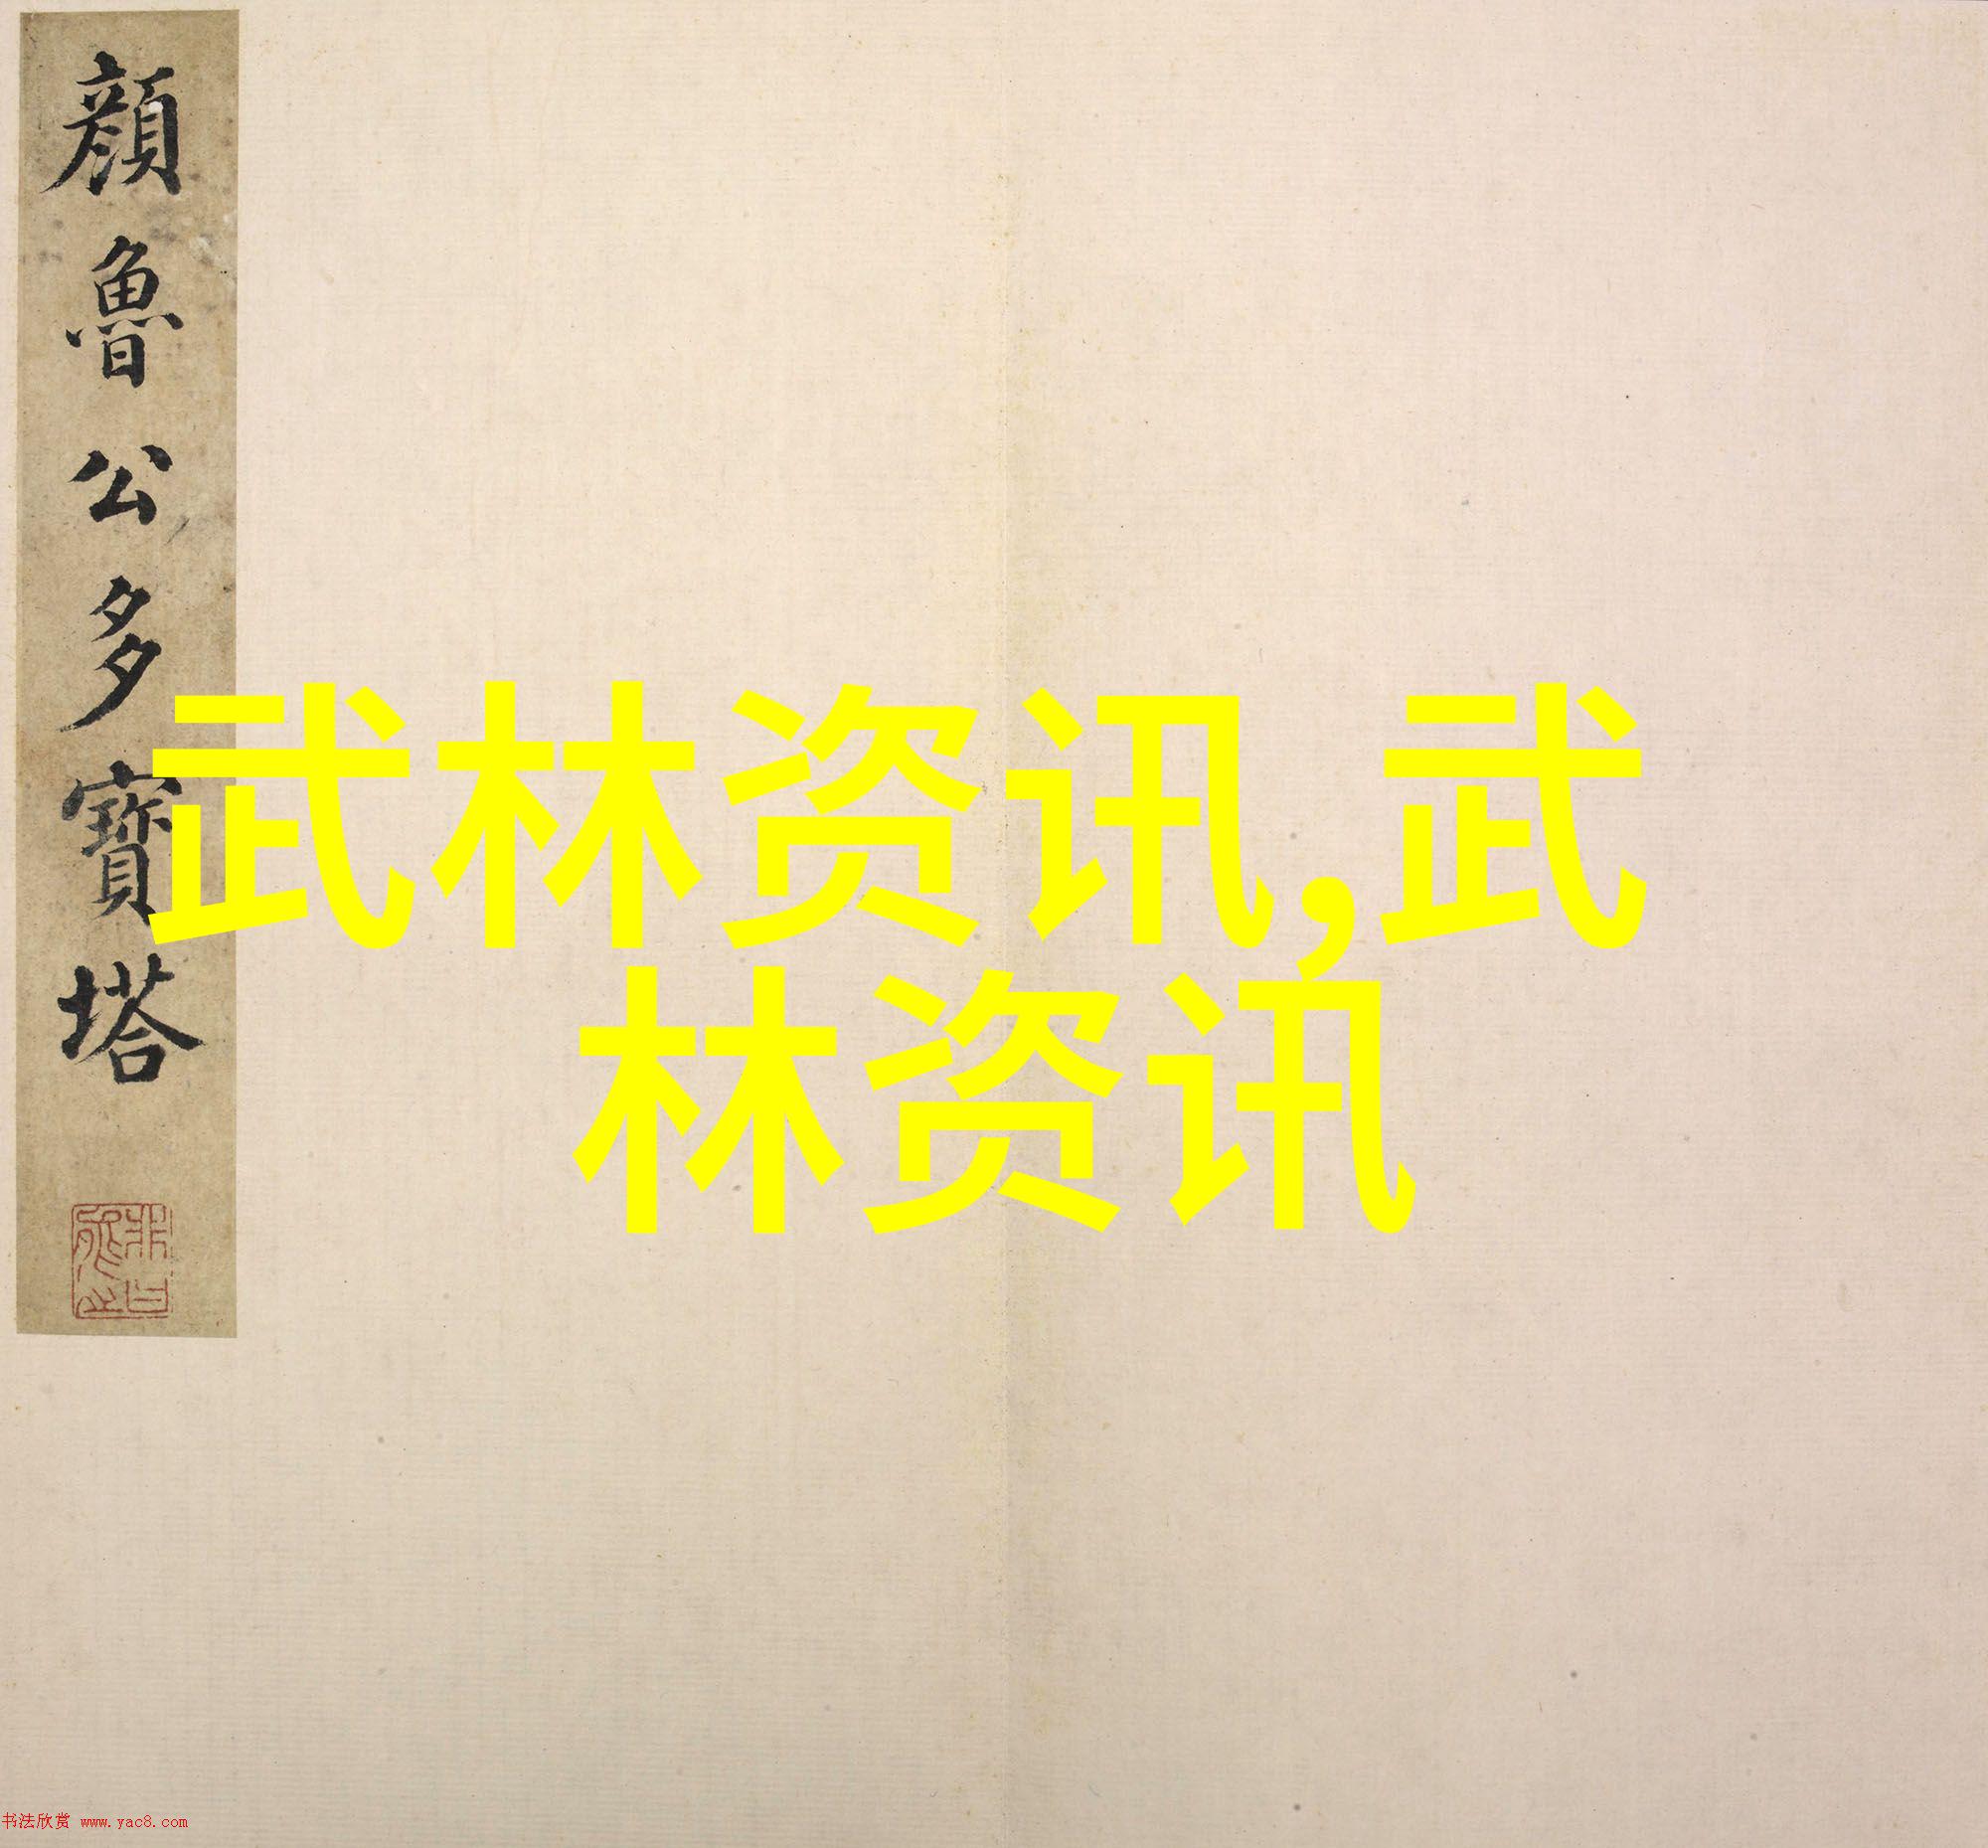 顏魯公多寶塔
武林资讯,武
林资讯
书法欣赏 www.yac8.com